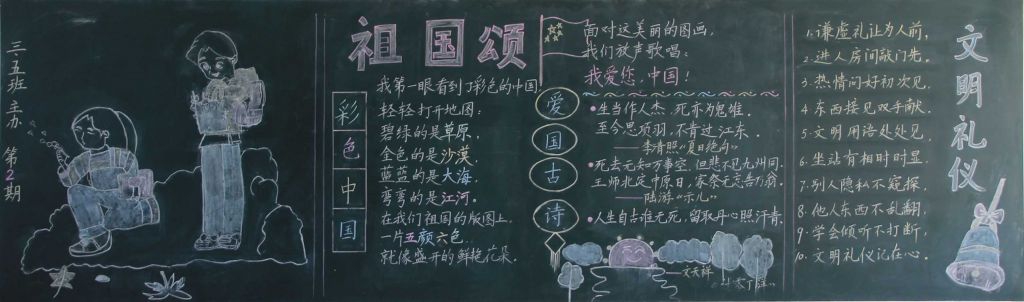 三五班 主办 第2期
祖国颂
彩色中国
我第一眼看到了彩色的中国!
轻轻打开地图:
碧绿的是草原,
金色的是沙漠,
蓝蓝的是大海,
弯弯的是江河。
在我们祖国的版图上,
一片五颜六色,
就像盛开的鲜艳花朵。
面对这美丽的图画,
我们放声歌唱:
我爱您,中国!
爱国古诗
•生当作人杰,死亦为鬼雄。
至今思项羽,不肯过江东。
——李清照"夏日绝句"
•死去元知万事空,但悲不见九州同。
王师北定中原日,家祭无忘告乃翁。
——陆游"示儿"
•人生自古谁无死,留取丹心照汗青。
——文天祥
文明礼仪
1. 谦虚礼让为人前,
2. 进人房间敲门先。
3. 热情问好初次见,
4. 东西接见双手献。
5. 文明用语处处见,
6. 坐站有相时时显。
7. 别人隐私不窥探,
8. 他人东西不乱翻,
9. 学会倾听不打断,
10. 文明礼仪记在心。